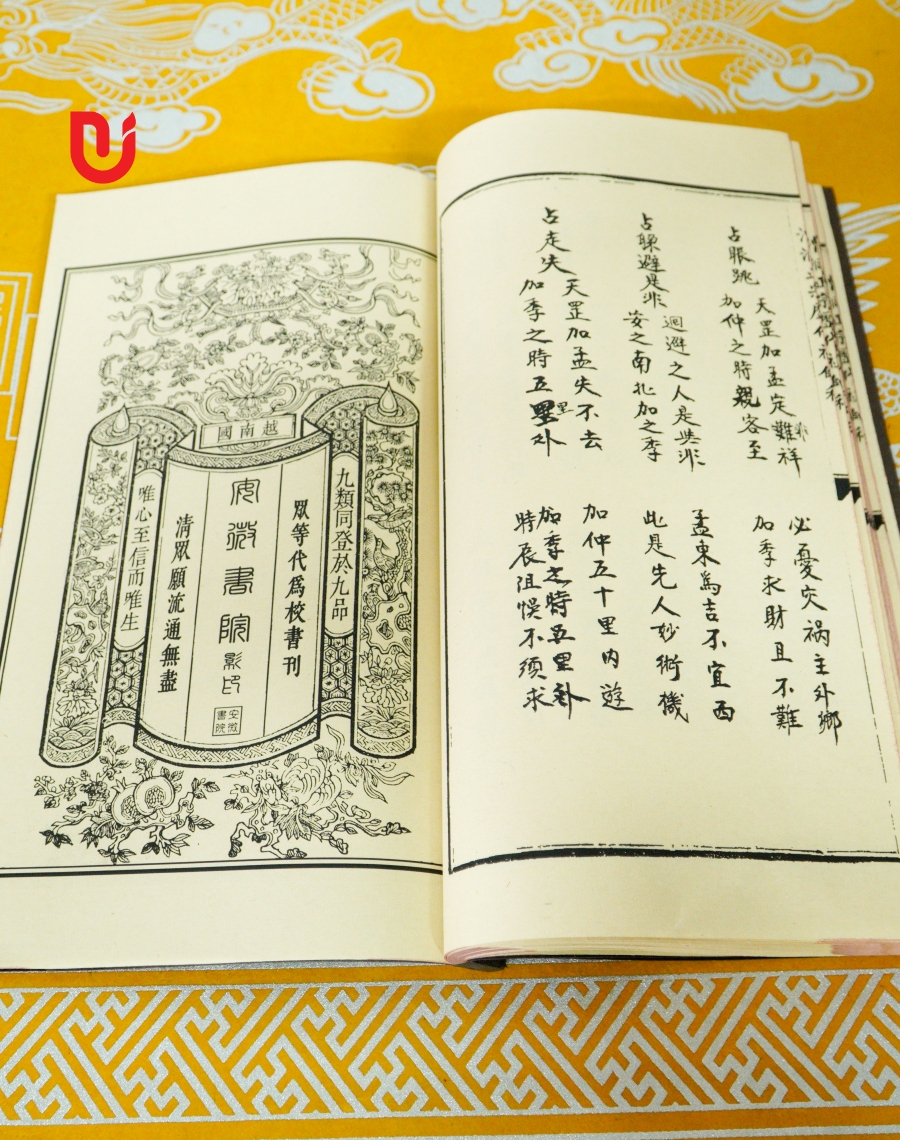 占眼跳
天罡加孟定難祥
必憂灾祸主外鄉
加仲之時親客至
加季求財且不難
占躲避是非
迴避之人是與非
孟東為吉不宜西
安之南北加之季
此是先人妙術機
占走失
天罡加孟失不去
加仲五十里内遊
加季之時五里外
加季之時五里
時辰阻悞不須求
越南國
九類同登於九品
眾等代爲校書刊
安微書院影印
安微書院
清眾願流通無盡
唯心至信而唯生